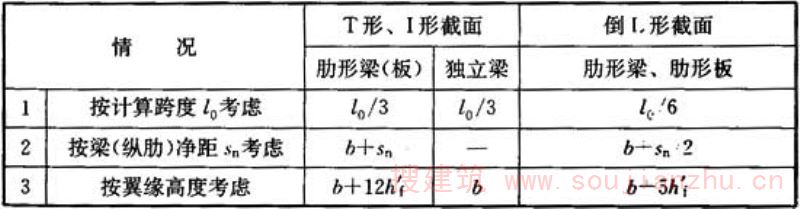 情 况 T形、I形截面 倒L形截面
肋形梁(板) 独立梁 肋形梁、肋形板
1 按计算跨度 l₀考虑 l₀/3 l₀/3 l₀/6
2 按梁(纵肋)净距 sₙ考虑 b+sₙ — b+sₙ/2
3 按翼缘高度考虑 b+12h′f b b+5h′f
搜建筑 www.soujianzhu.cn